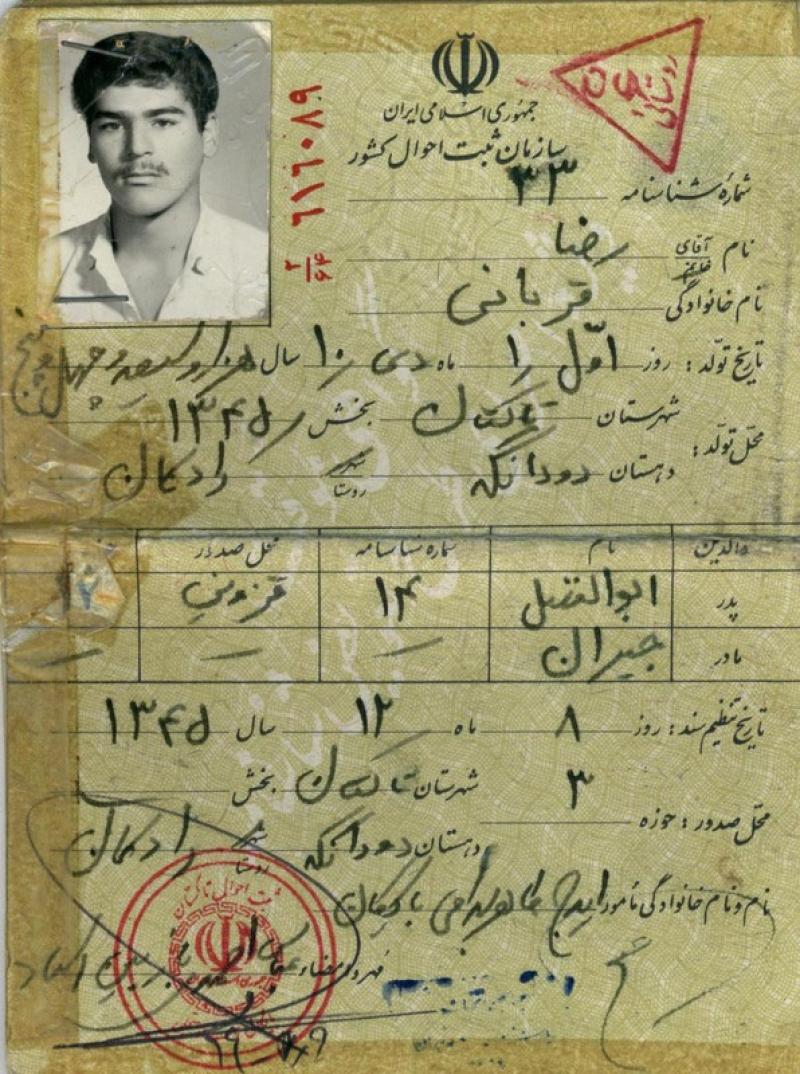 جمهوری اسلامی ایران
سازمان ثبت احوال کشور
روستائی
۶۱۶۰۸۹
۲/۶۴
شماره شناسنامه ۳۳
نام آقای خانم رضا
نام خانوادگی قربانی
تاریخ تولد: روز اول ۱ ماه دی ۱۰ سال هزار و سیصد و چهل و پنج
محل تولد: شهرستان تاکستان بخش ۱۳۴۵
دهستان دودانگه شهر روستا رادکان
والدین نام شماره شناسنامه محل صدور
پدر ابوالفضل ۱۴ قزوین
مادر جیران — — —
تاریخ تنظیم سند: روز ۸ ماه ۱۲ سال ۱۳۴۵
محل صدور: حوزه ۳ شهرستان تاکستان بخش
دهستان دودانگه شهر روستا رادکان
نام و نام خانوادگی مأمور ایرج
مهر و امضاء
ثبت احوال تاکستان